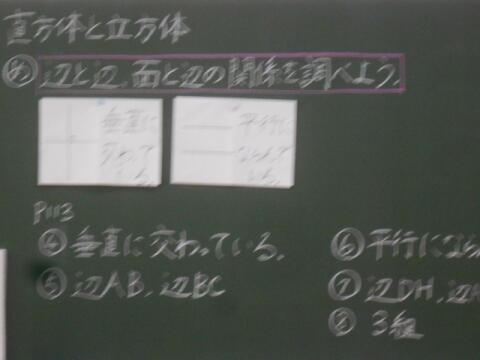 直方体と立方体
め 辺と辺、面と辺の関係を調べよう。
垂直に
交わって
いる。
平行に
ならんで
いる。
P113
④ 垂直に交わっている。
⑤ 辺AB、辺BC
⑥ 平行になら
⑦ 辺DH、辺
⑧ 3組